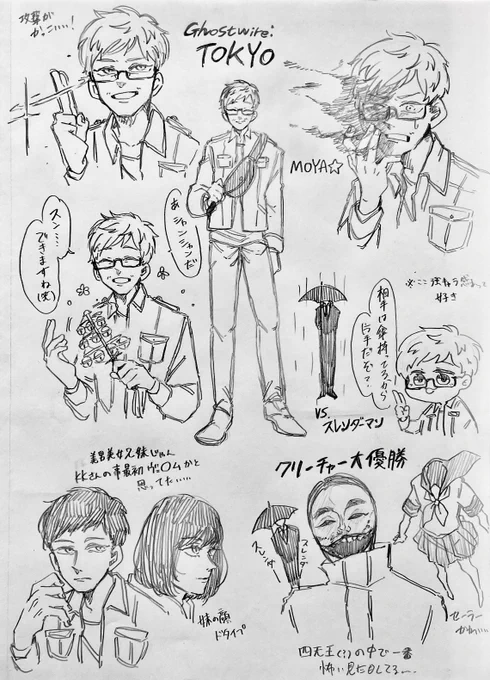 攻撃が
かっこいい!
Ghostwire:
TOKYO
MOYA☆
あ
シャンシャンだ
スン…
できますね(笑)
※ここ強キャラ感あって
好き
相手は傘持ってるから
片手だぞ?
VS.
スレンダーマン
美男美女兄妹じゃん
KKさんの事最初ヴェ○ムかと
思ってた……
クリーチャー大優勝
スレンダー
スレンダー
妹の顔
ドタイプ
セーラー
かわいい
四天王(?)の中で一番
怖い見た目してる…